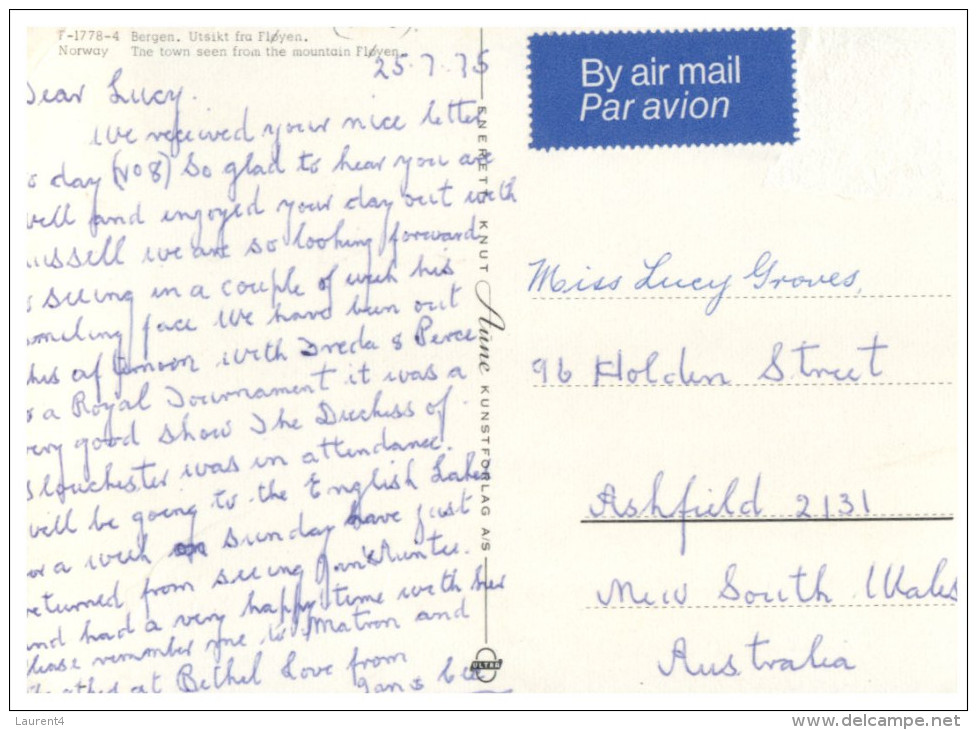 F-1778-4 Bergen. Utsikt fra Fløyen.
Norway The town seen from the mountain Fløyen.
25.7.75
Dear Lucy.
We received your nice letter
to day (No 8) So glad to hear you are
well and enjoyed your day out with
Russell we are so looking forward
to seeing in a couple of week his
smiling face We have been out
this afternoon with Freda & Perce
to a Royal Tournament it was a
very good show The Duchess of
Glouchester was in attendance.
will be going to the English Lakes
for a week on Sunday have just
returned from seeing Auntie.
and had a very happy time with her
Please remember me to Matron and
the others at Bethel Love from
ENERETT KNUT Aune KUNSTFORLAG A/S
ULTRA
By air mail
Par avion
Miss Lucy Groves,
96 Holden Street
Ashfield 2131
New South Wales
Australia
Laurent4
www.delcampe.net